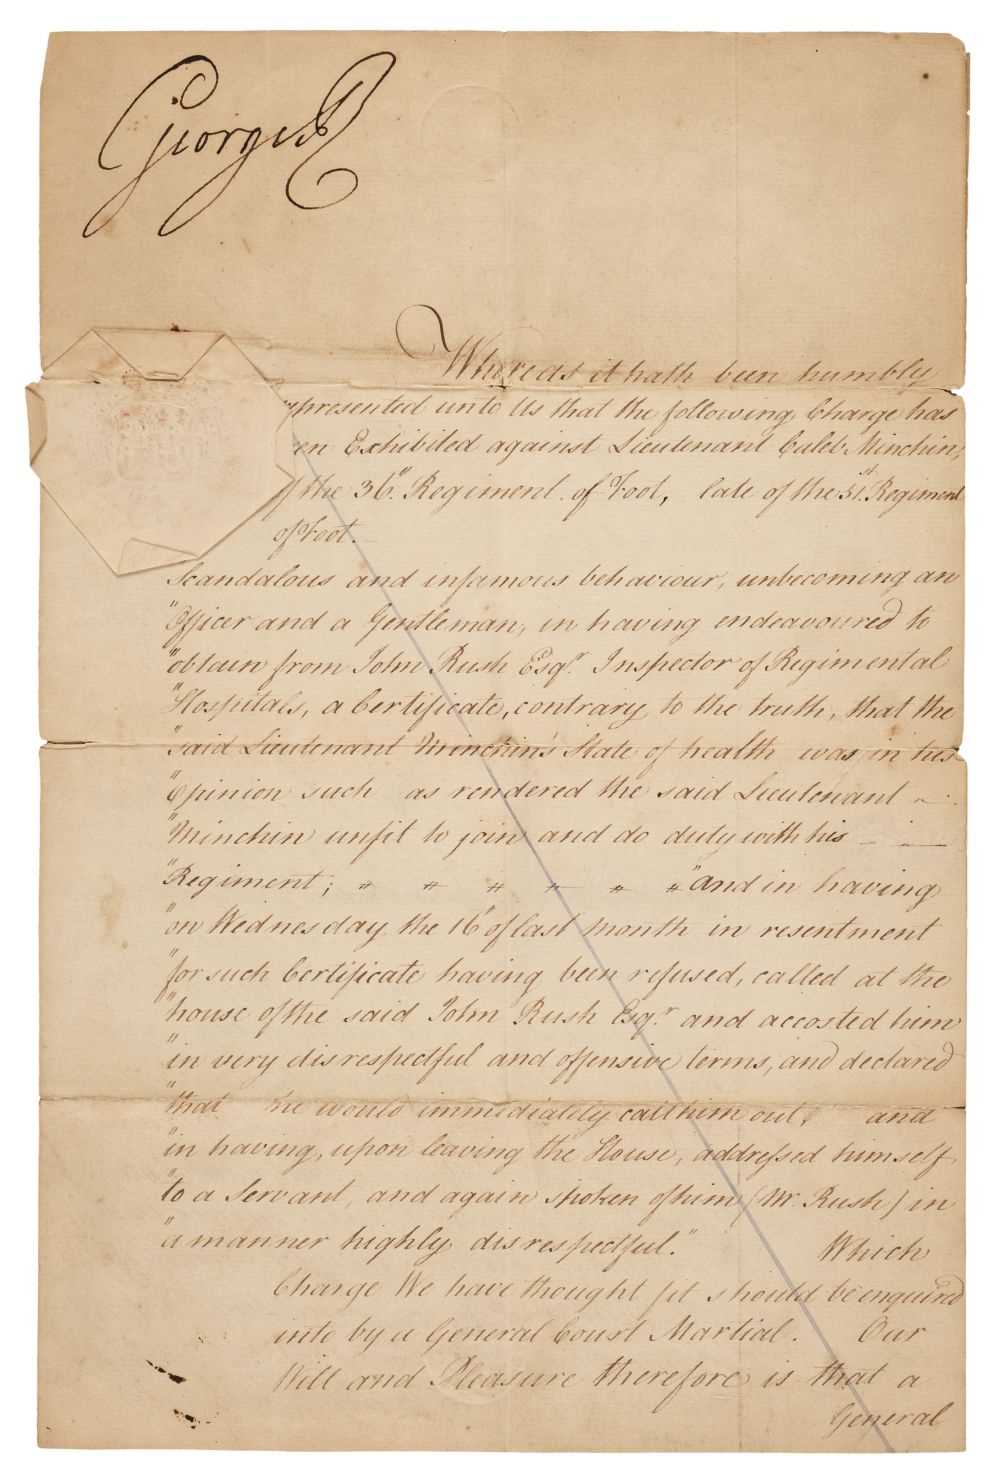 George R
Whereas it hath been humbly
represented unto Us that the following Charge has
en Exhibited against Lieutenant Caleb Minchin,
of the 36th Regiment of Foot, late of the 51st Regiment
of Foot.
Scandalous and infamous behaviour, unbecoming an
"Officer and a Gentleman, in having endeavoured to
"obtain from John Rush Esqr. Inspector of Regimental
"Hospitals, a Certificate, contrary to the truth, that the
"said Lieutenant Minchin's State of health was in his
"Opinion such as rendered the said Lieutenant
"Minchin unfit to join and do duty with his
"Regiment; " " " " " "and in having
"on Wednesday the 16th of last month in resentment
"for such Certificate having been refused, called at the
"house of the said John Rush Esqr. and accosted him
"in very disrespectful and offensive terms, and declared
"that he would immediately call him out, and
"in having, upon leaving the House, addressed himself
"to a Servant, and again spoken of him (Mr. Rush) in
"a manner highly disrespectful." Which
Charge We have thought fit should be enquired
into by a General Court Martial. Our
Will and Pleasure therefore is that a
General